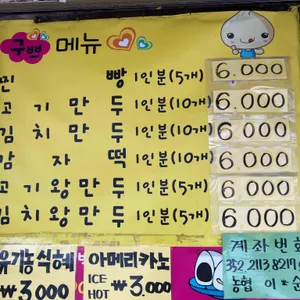 구쁘 메뉴
찐 빵 1인분(5개) 6.000
고기만두 1인분(10개) 6.000
김치만두 1인분(10개) 6.000
감자떡 1인분(10개) 6.000
고기왕만두 1인분(5개) 6.000
김치왕만두 1인분(5개) 6.000
유기농식혜
₩3.000
아메리카노
ICE
HOT ₩3.000
계좌번호
농협 이